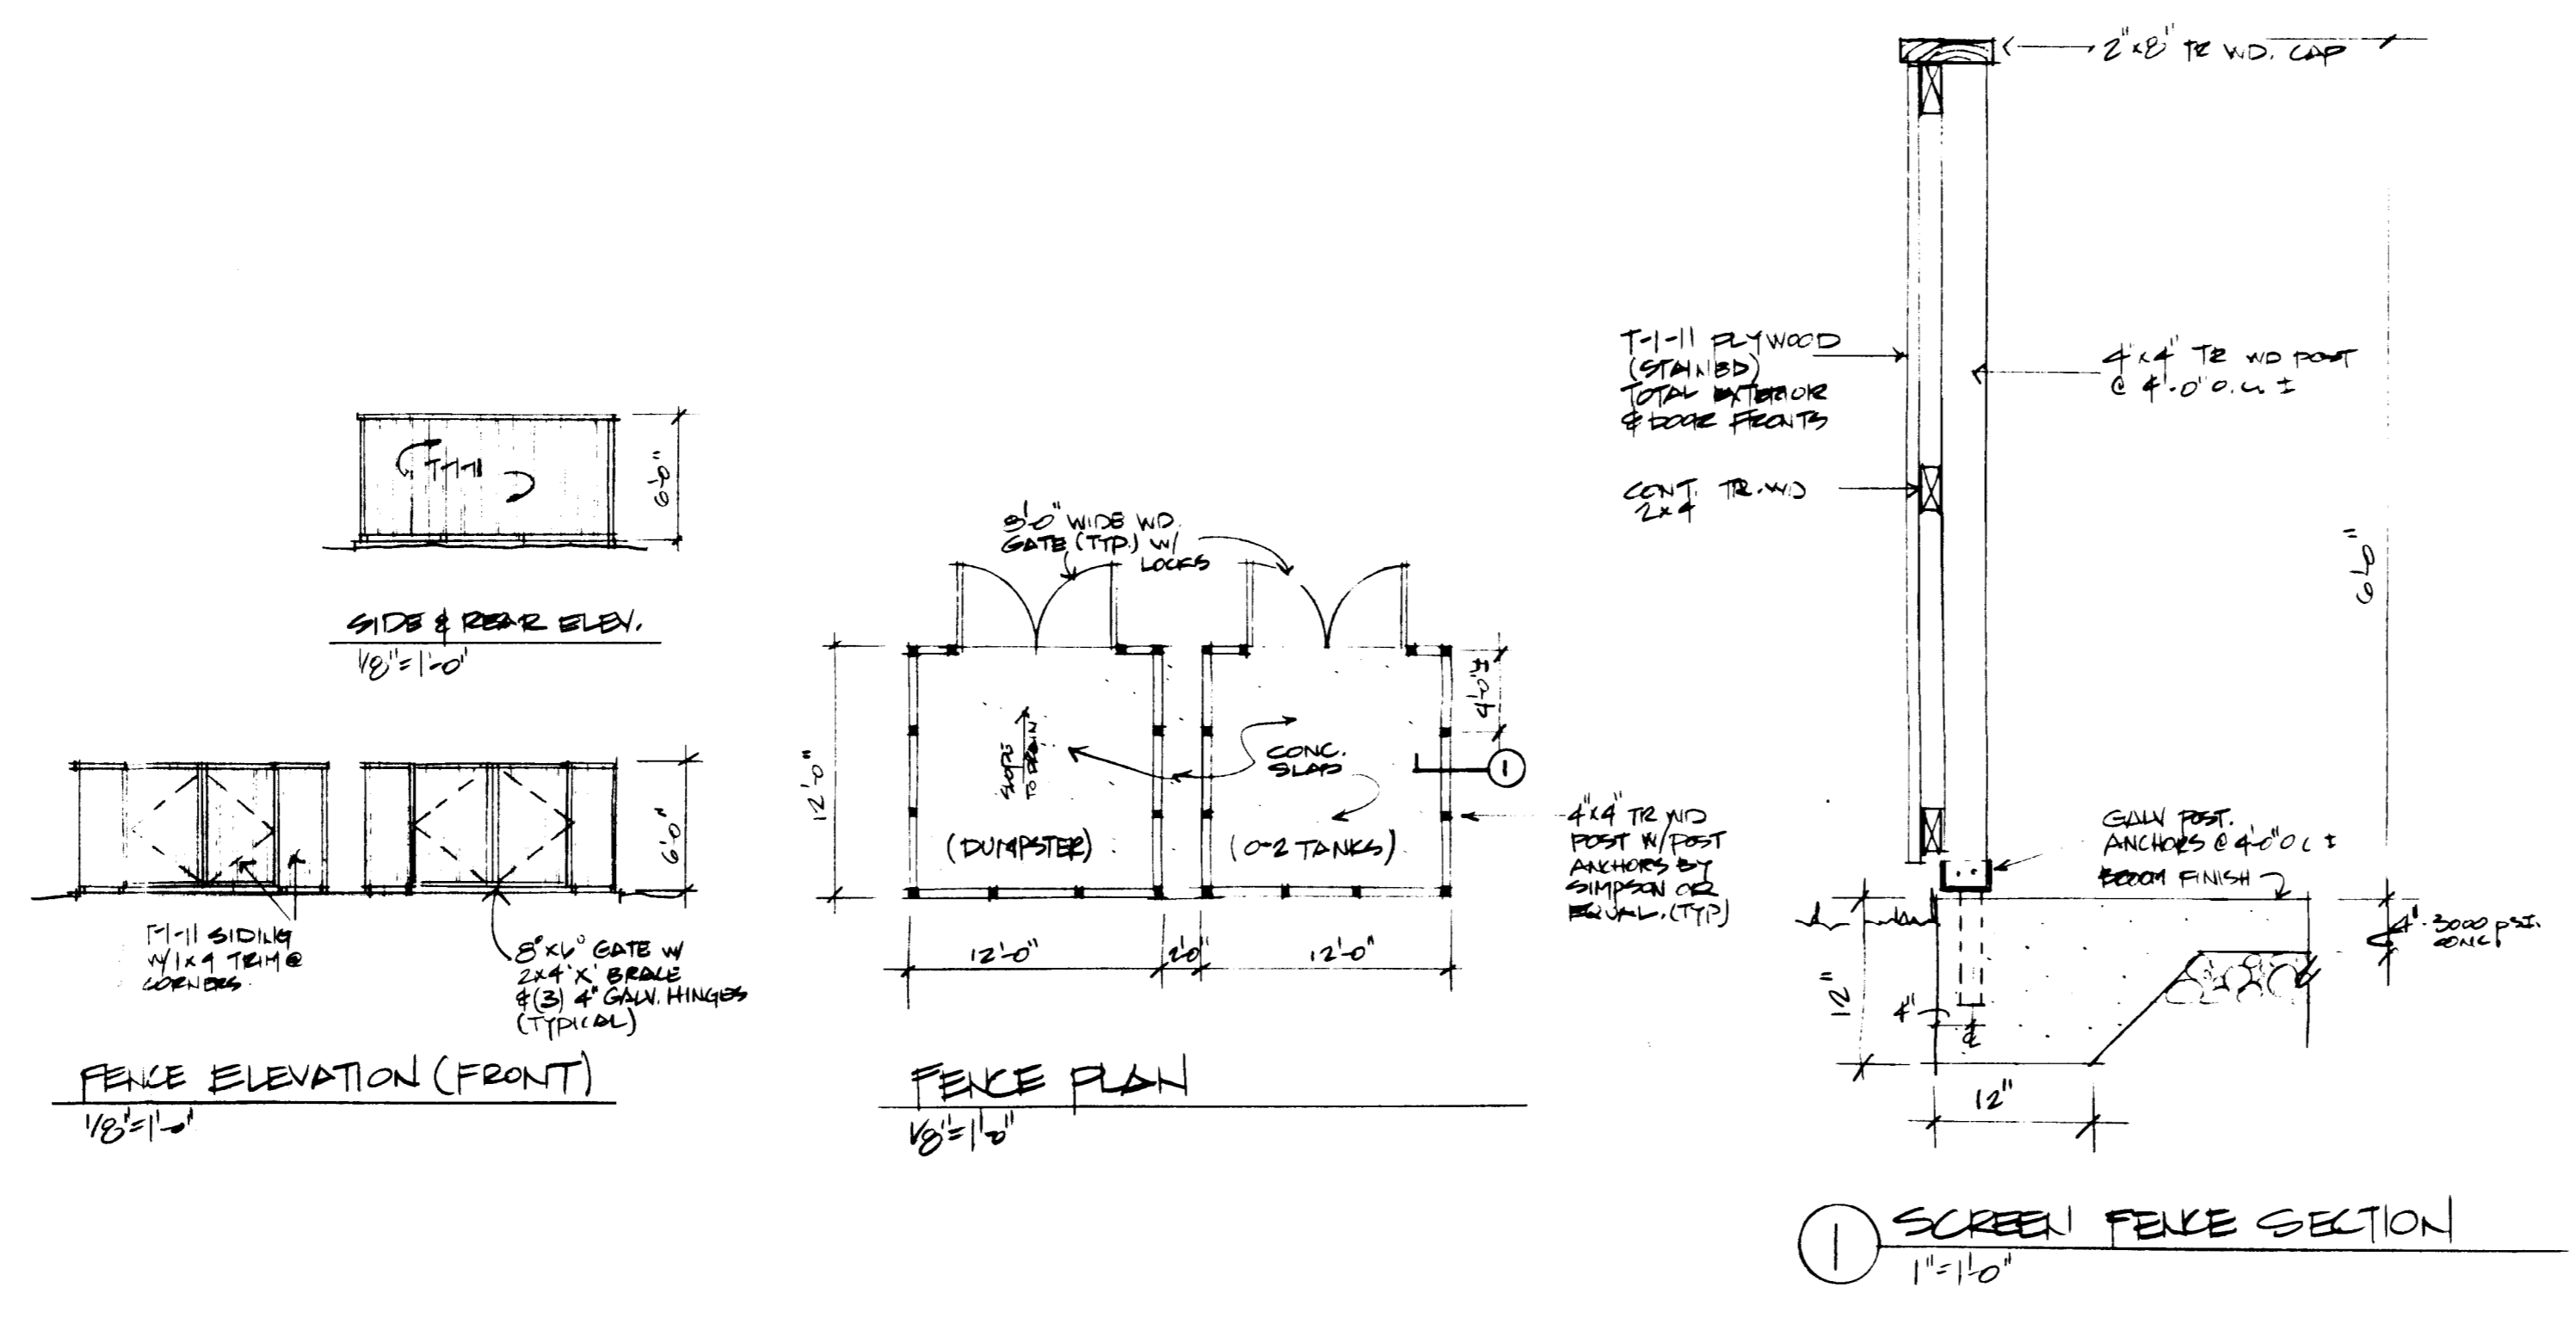 T-1-11
6'-0"
SIDE & REAR ELEV.
1/8"=1'-0"
6'-0"
T-1-11 SIDING
W/1x4 TRIM @
CORNERS.
8'x6' GATE W/
2x4 'X' BRACE
&(3) 4" GALV. HINGES
(TYPICAL)
FENCE ELEVATION (FRONT)
1/8"=1'-0"
8'-0" WIDE WD.
GATE (TYP.) W/
LOCKS
12'-0"
SLOPE
TO DRAIN
CONC.
SLAB
4'-0"±
1
(DUMPSTER)
(O-2 TANKS)
4"x4" TR WD
POST W/POST
ANCHORS BY
SIMPSON OR
EQUAL. (TYP)
12'-0"
2'-0"
12'-0"
FENCE PLAN
1/8"=1'-0"
2"x8" TR WD. CAP
T-1-11 PLYWOOD
(STAINED)
TOTAL EXTERIOR
& DOOR FRONTS
4"x4" TR WD POST
@ 4'-0" O.C. ±
CONT. TR. WD
2x4
6'-0"
GALV POST.
ANCHORS @ 4'-0" O.C ±
BROOM FINISH
4" 3000 p.s.i.
CONC.
12"
4"
℄
12"
1
SCREEN FENCE SECTION
1"=1'-0"